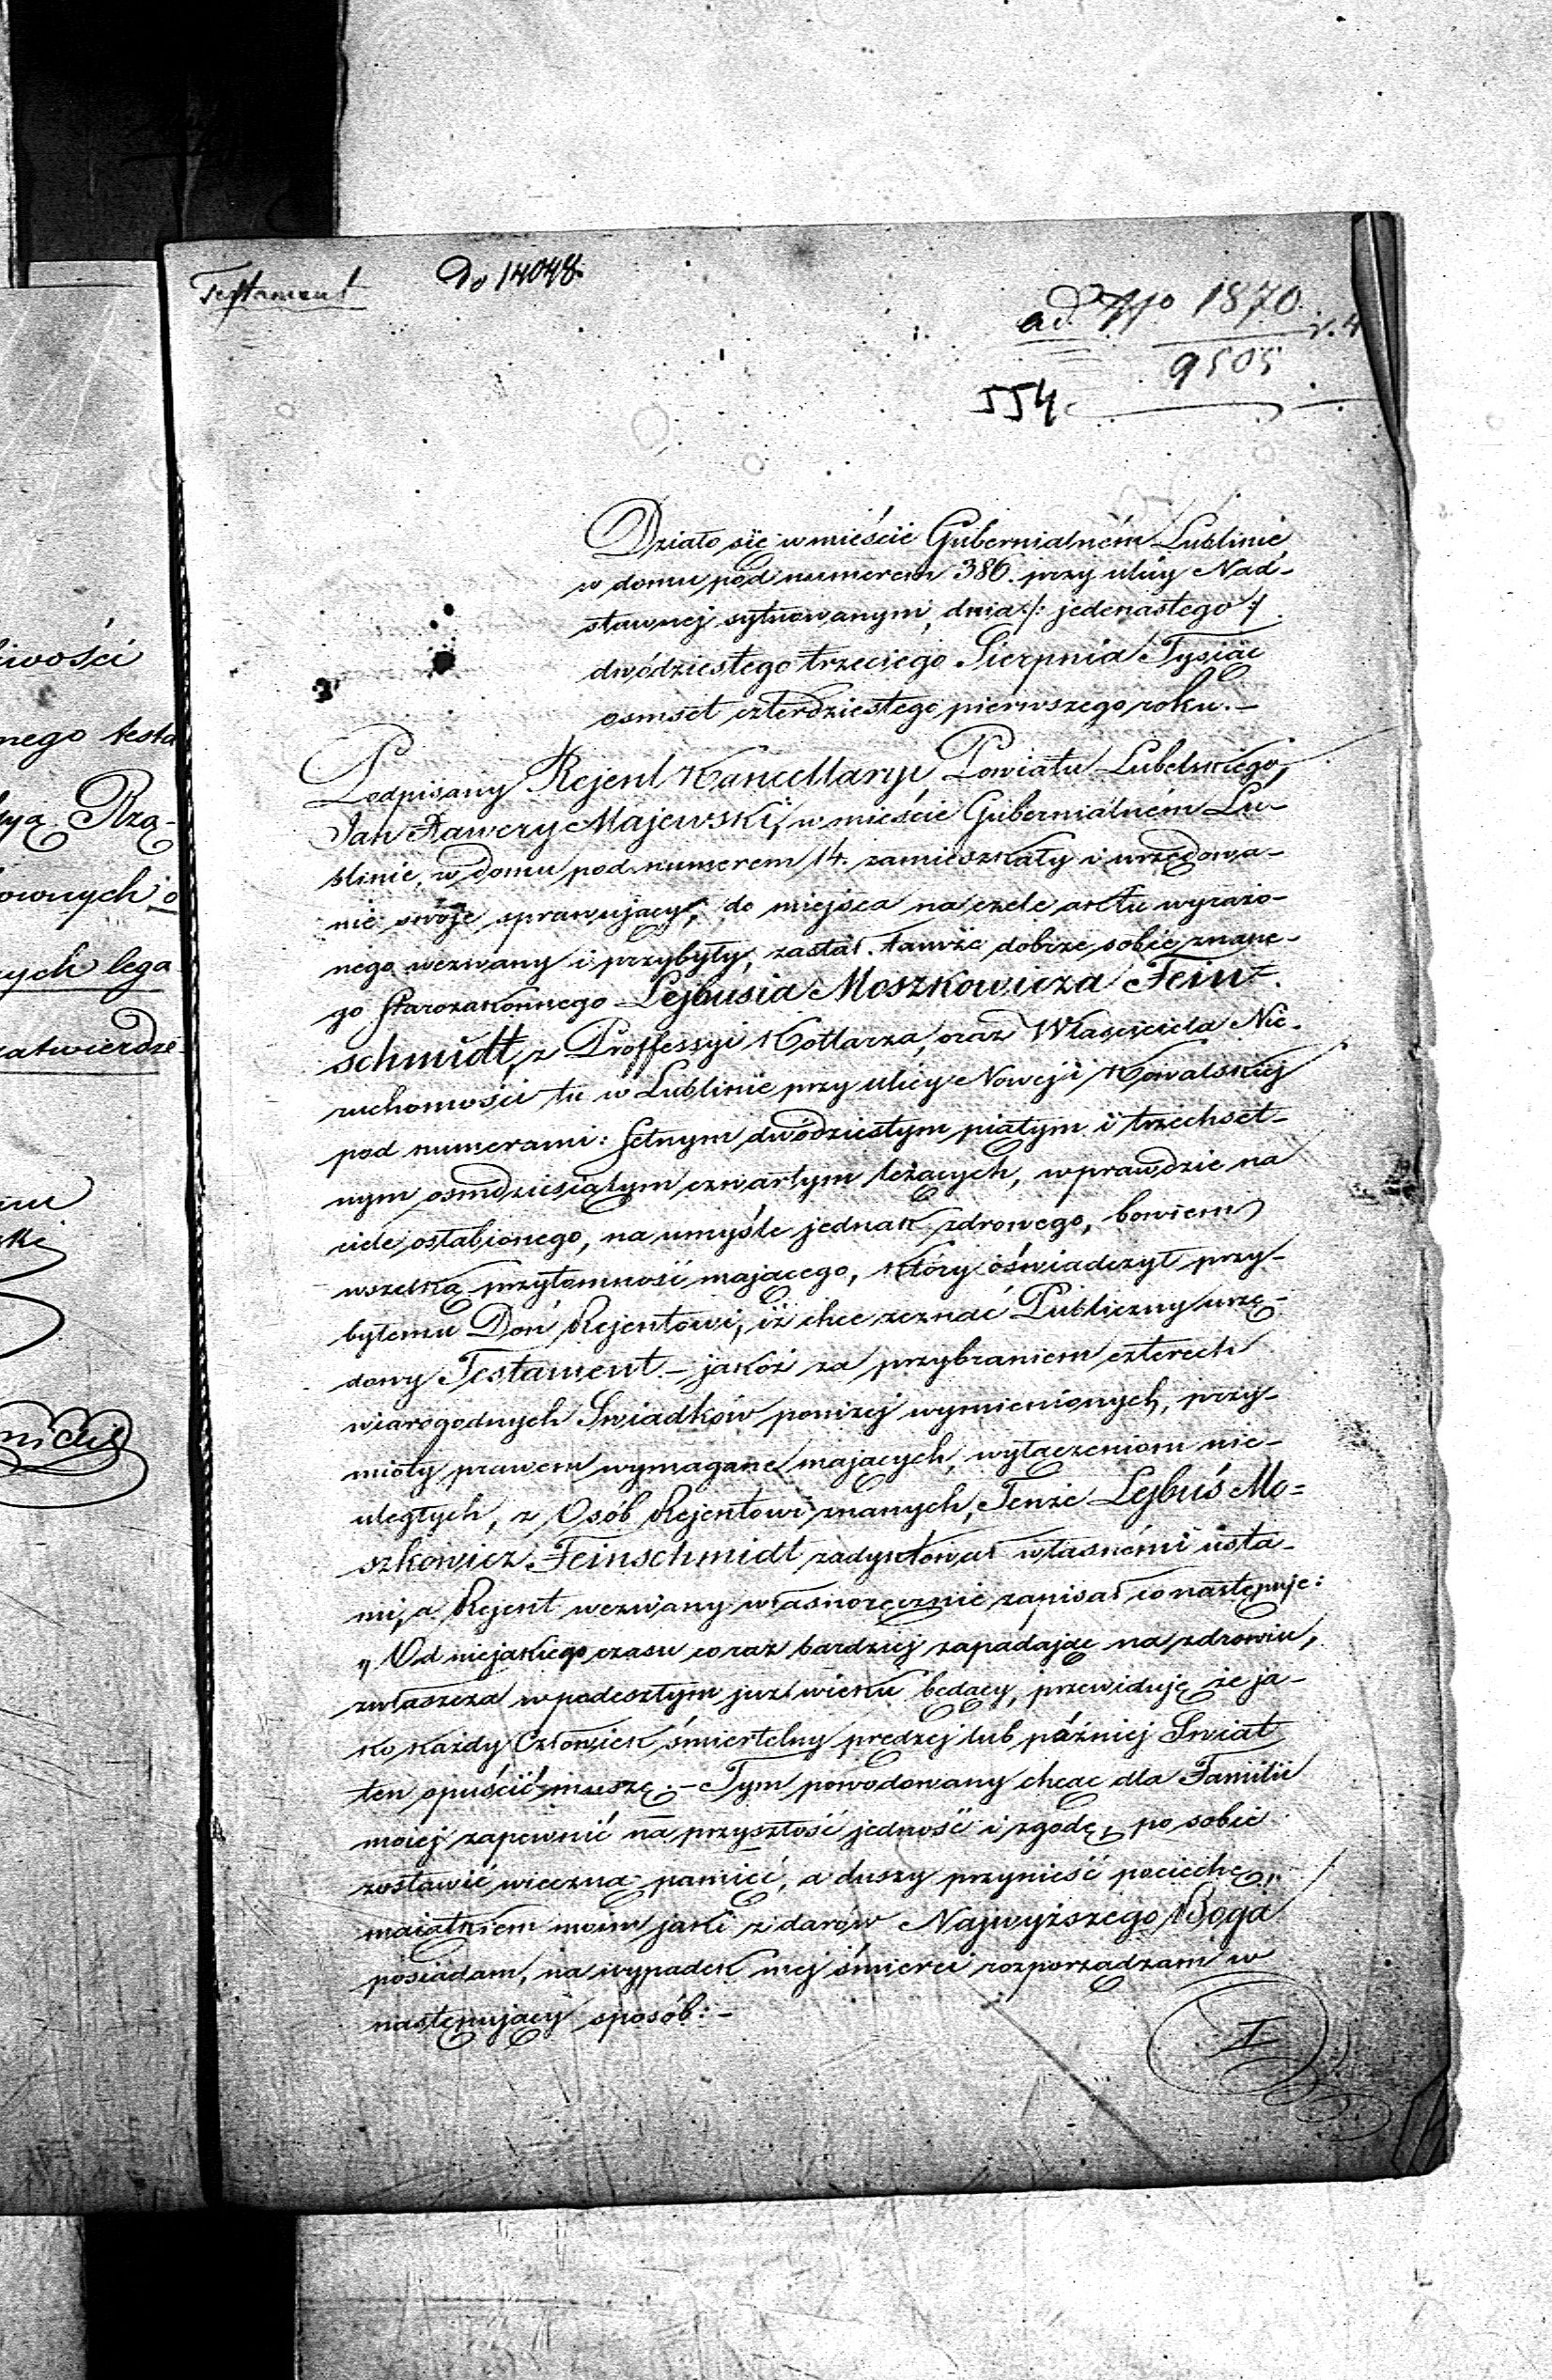 Testament
Do 14048.
ad. Nro 1870. r. 4
9505
554.
Działo się w mieście Gubernialném Lublinie
w domu pod numerem 386. przy ulicy Nad-
stawnej sytuowanym, dnia /: jedenastego :/
dwódziestego trzeciego Sierpnia Tysiąc
osmset czterdziestego pierwszego roku.-
Podpisany Rejent Kancellaryi Powiatu Lubelskiego,
Jan Xawery Majewski, w mieście Gubernialném Lu-
blinie, w domu pod numerem 14. zamieszkały i urzędowa-
nie swoje sprawujący, do miejsca na czele aktu wyrażo-
nego wezwany i przybyły, zastał tamże dobrze sobie znane-
go starozakonnego Lejbusia Moszkowicza Fein-
schmidt, z Proffessyi Kotlarza, oraz Właściciela Nie-
ruchomości tu w Lublinie przy ulicy Nowej i Kowalskiej
pod numerami: setnym dwódziestym piątym i trzechset-
nym osmdziesiątym czwartym leżących, wprawdzie na
ciele osłabionego, na umyśle jednak zdrowego, bowiem
wszelką przytomność mającego, który oświadczył przy-
byłemu Doń Rejentowi, iż chce zeznać Publiczny urzę-
dowy Testament - jakoż za przybraniem czterech
wiarogodnych Swiadków poniżej wymienionych, przy-
mioty prawem wymagane mających, wyłączeniom nie-
uległych, z Osób Rejentowi znanych, Tenże Lejbuś Mo=
szkowicz Feinschmidt zadyktował własnémi usta-
mi, a Rejent wezwany własnoręcznie zapisał co następuje:
„Od niejakiego czasu coraz bardziej zapadając na zdrowiu,
zwłaszcza w podeszłym już wieku będący, przewiduję że ja-
ko każdy Człowiek śmiertelny prędzej lub późniéj Swiat
ten opuścić muszę.- Tym powodowany chcąc dla Familii
moiej zapewnić na przyszłość jedność i zgodę, po sobie
zostawić wieczną pamięć, a duszy przynieść pociechę,
maiątkiem moim jaki z darów Najwyższego Boga
posiadam, na wypadek mej śmierci rozporządzam w
następujący sposób:-
I
iwości
nego testa
Rzą-
ownych o
ych lega
zatwierdze-